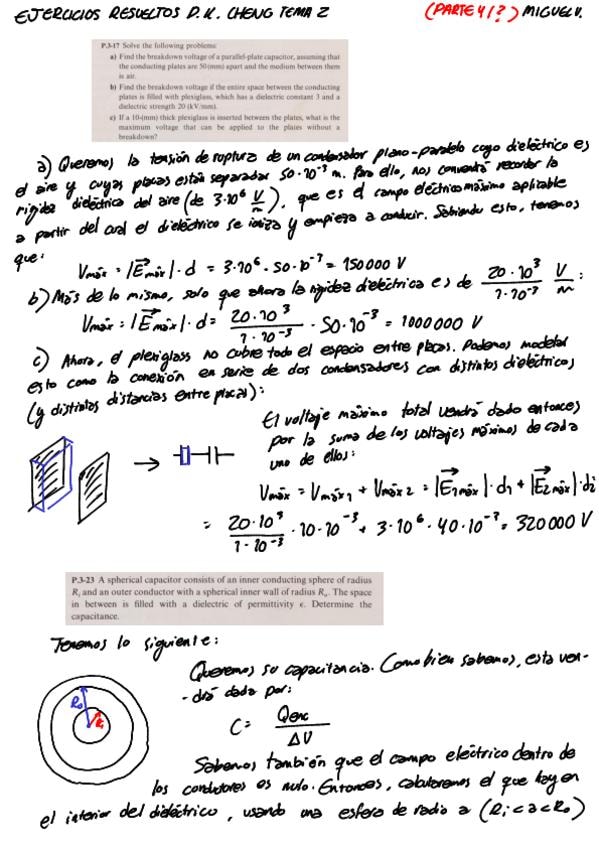 EJERCICIOS RESUELTOS D.K. CHENG TEMA 2 (PARTE 4/?) MIGUEL V.
P.3-17 Solve the following problems:
a) Find the breakdown voltage of a parallel-plate capacitor, assuming that
the conducting plates are 50 (mm) apart and the medium between them
is air.
b) Find the breakdown voltage if the entire space between the conducting
plates is filled with plexiglass, which has a dielectric constant 3 and a
dielectric strength 20 (kV/mm).
c) If a 10-(mm) thick plexiglass is inserted between the plates, what is the
maximum voltage that can be applied to the plates without a
breakdown?
a) Queremos la tensión de ruptura de un condensador plano-paralelo cuyo dieléctrico es
el aire y cuyas placas están separadas 50·10⁻³ m. Para ello, nos convendrá recordar la
rigidez dieléctrica del aire (de 3·10⁶ V/m), que es el campo eléctrico máximo aplicable
a partir del cual el dieléctrico se ioniza y empieza a conducir. Sabiendo esto, tenemos
que:
Vmáx = |Emáx|·d = 3·10⁶·50·10⁻³ = 150000 V
b) Más de lo mismo, solo que ahora la rigidez dieléctrica es de 20·10³/1·10⁻³ V/m :
Vmáx = |Emáx|·d = 20·10³/1·10⁻³ · 50·10⁻³ = 1000000 V
c) Ahora, el plexiglass no cubre todo el espacio entre placas. Podemos modelar
esto como la conexión en serie de dos condensadores con distintos dieléctricos
(y distintas distancias entre placas):
El voltaje máximo total vendrá dado entonces
por la suma de los voltajes máximos de cada
uno de ellos:
Vmáx = Vmáx1 + Vmáx2 = |E1máx|·d1 + |E2máx|·d2
= 20·10³/1·10⁻³ · 10·10⁻³ + 3·10⁶·40·10⁻³ = 320000 V
P.3-23 A spherical capacitor consists of an inner conducting sphere of radius
Rᵢ and an outer conductor with a spherical inner wall of radius Rₒ. The space
in between is filled with a dielectric of permittivity ϵ. Determine the
capacitance.
Tenemos lo siguiente:
Queremos su capacitancia. Como bien sabemos, esta ven-
-drá dada por:
Ro
Ri
C = Qenc/ΔV
Sabemos también que el campo eléctrico dentro de
los conductores es nulo. Entonces, calcularemos el que hay en
el interior del dieléctrico, usando una esfera de radio a (Ri<a<Ro)